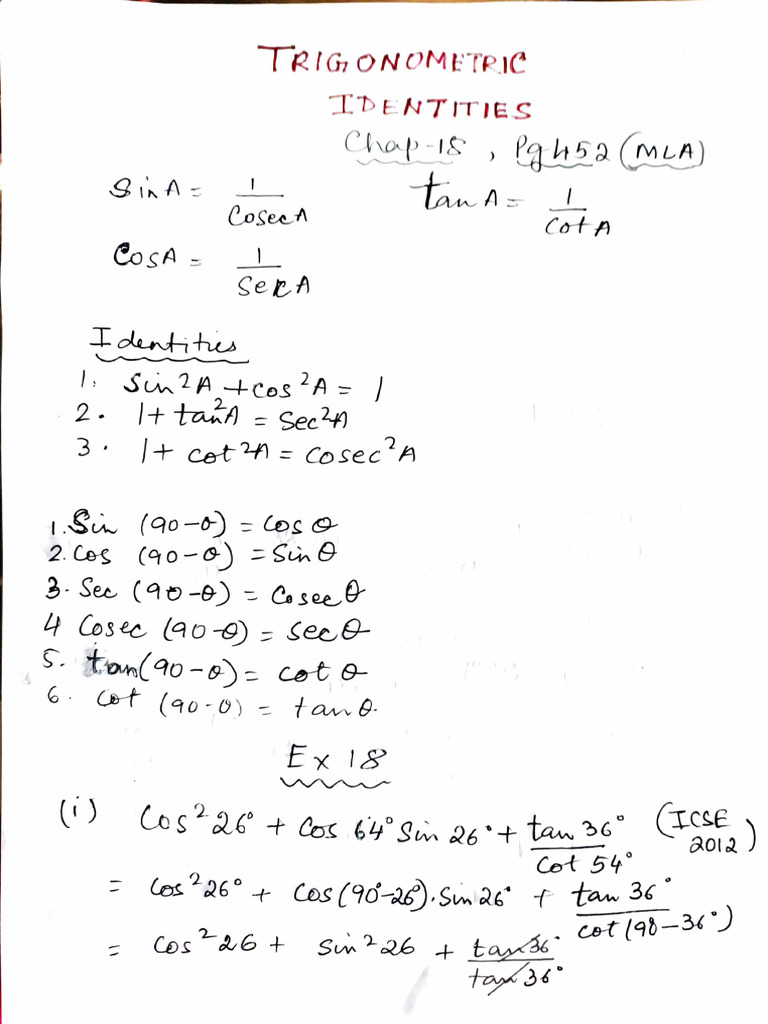 TRIGONOMETRIC
IDENTITIES
Chap-18, Pg 452 (MLA)
Sin A = 1/Cosec A    tan A = 1/Cot A
Cos A = 1/Sec A
Identities
1. Sin²A + cos²A = 1
2. 1 + tan²A = Sec²A
3. 1 + cot²A = Cosec²A
1. Sin (90-θ) = Cos θ
2. Cos (90-θ) = Sin θ
3. Sec (90-θ) = Cosec θ
4 Cosec (90-θ) = Sec θ
5. tan (90-θ) = cot θ
6. Cot (90-θ) = tan θ.
Ex 18
(i) Cos²26° + Cos 64° Sin 26° + tan 36°/Cot 54° (ICSE 2012)
= Cos²26° + Cos(90°-26°).Sin 26° + tan 36°/cot(90-36°)
= Cos²26 + Sin²26 + tan 36°/tan 36°